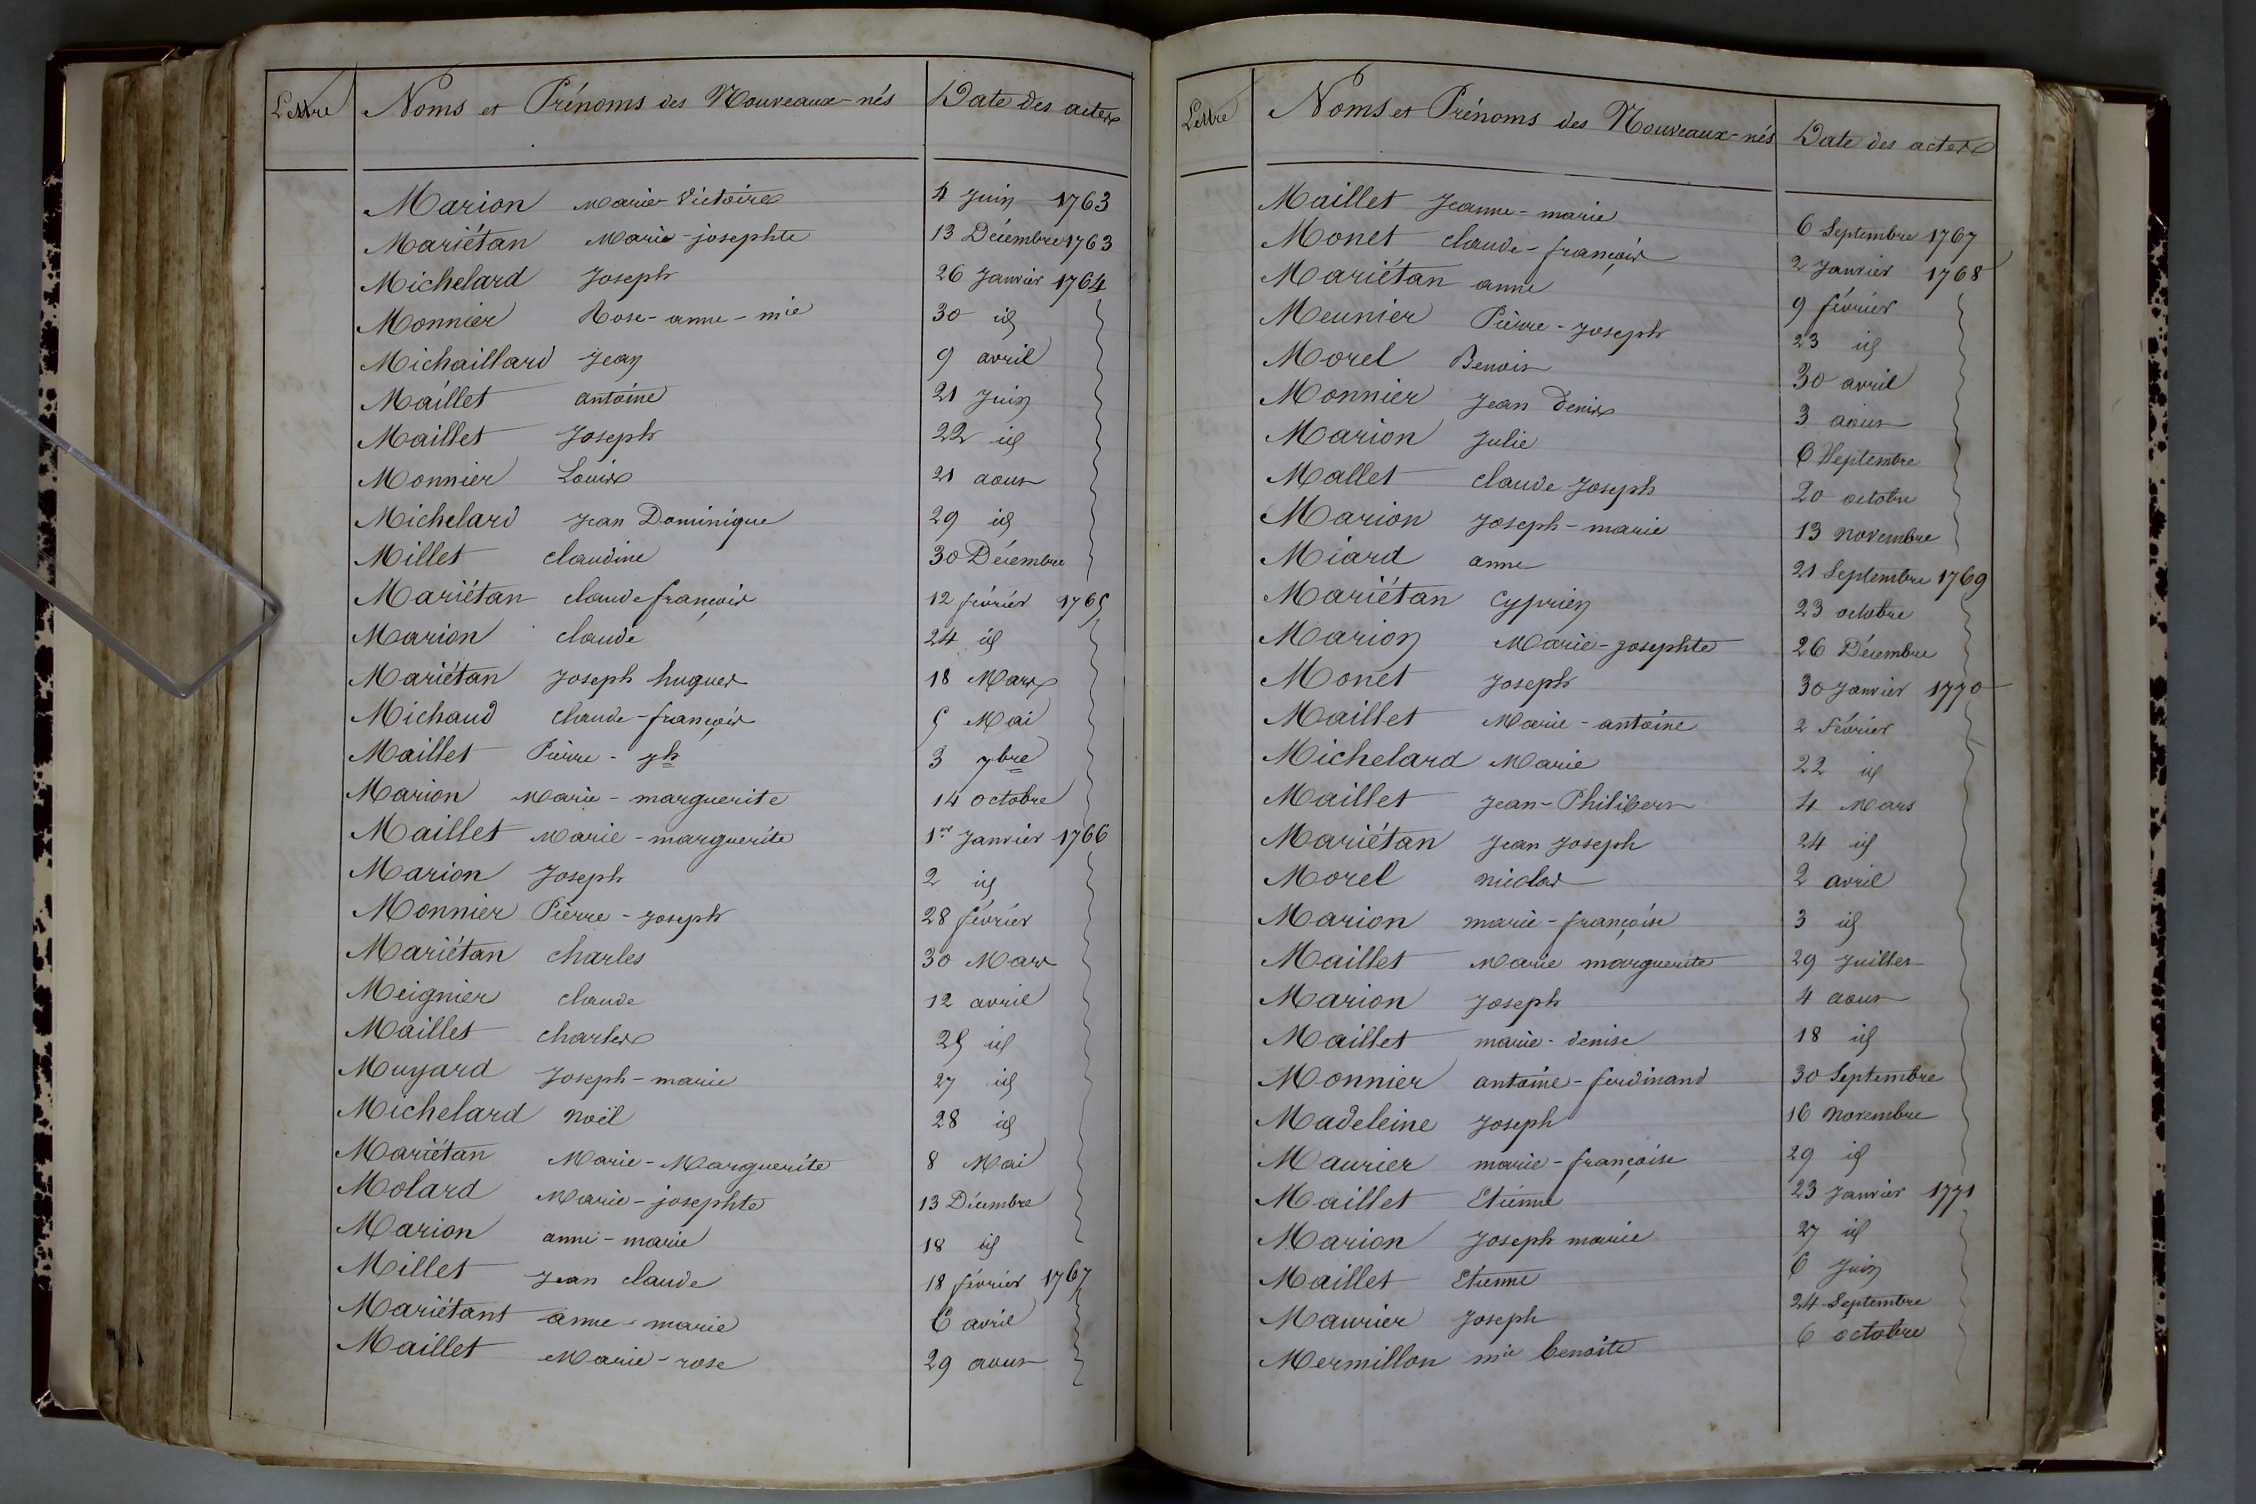 Lettre Noms et Prénoms des Nouveaux-nés Date des actes
Marion Marie-Victoire 4 Juin 1763
Mariétan Marie-josephte 13 Décembre 1763
Michelard Joseph 26 Janvier 1764
Monnier Rose-anne-mie 30 id
Michaillard Jean 9 avril
Maillet antoine 21 Juin
Maillet Joseph 22 id
Monnier Louis 21 aout
Michelard Jean Dominique 29 id
Millet Claudine 30 Décembre
Mariétan claude françois 12 février 1765
Marion claude 24 id
Mariétan Joseph hugues 18 Mars
Michaud claude-françois 5 Mai
Maillet Pierre-jh 3 7bre
Marion Marie-marguerite 14 octobre
Maillet Marie-marguerite 1er Janvier 1766
Marion Joseph 2 id
Monnier Pierre-Joseph 28 février
Mariétan charles 30 Mars
Meignier claude 12 avril
Maillet charles 25 id
Muyard Joseph-marie 27 id
Michelard Noël 28 id
Mariétan Marie-Marguerite 8 Mai
Molard Marie-josephte 13 Décembre
Marion anne-marie 18 id
Millet Jean claude 18 février 1767
Mariétant anne-marie 6 avril
Maillet Marie-rose 29 aout
Lettre Noms et Prénoms des Nouveaux-nés Date des actes
Maillet Jeanne-marie 6 Septembre 1767
Monet claude-françois 2 Janvier 1768
Mariétan anne 9 février
Meunier Pierre-Joseph 23 id
Morel Benoit 30 avril
Monnier Jean Denis 3 aout
Marion Julie 6 Septembre
Mallet claude Joseph 20 octobre
Marion Joseph-marie 13 novembre
Miard anne 21 Septembre 1769
Mariétan Cyprien 23 octobre
Marion Marie-Josephte 26 Décembre
Monet Joseph 30 Janvier 1770
Maillet Marie-antoine 2 Février
Michelard Marie 22 id
Maillet Jean-Philibert 4 Mars
Mariétan Jean Joseph 24 id
Morel nicolas 2 avril
Marion marie-françoise 3 id
Maillet Marie marguerite 29 Juillet
Marion Joseph 4 aout
Maillet marie-denise 18 id
Monnier antoine-ferdinand 30 Septembre
Madeleine Joseph 16 Novembre
Maurier marie-françoise 29 id
Maillet Etienne 23 Janvier 1771
Marion Joseph marie 27 id
Maillet Etienne 6 Juin
Maurier Joseph 24 Septembre
Mermillon mie benoite 6 octobre